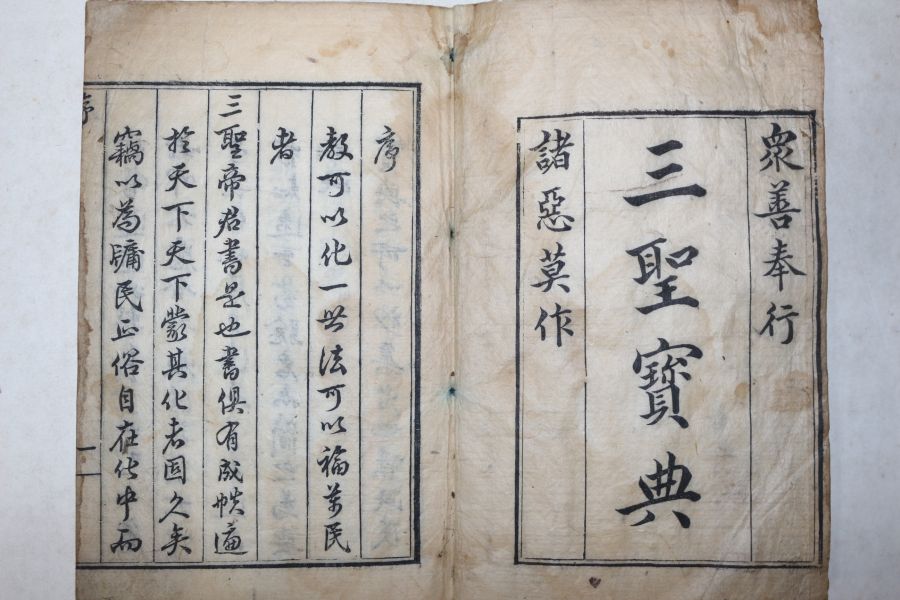 衆善奉行
三聖寶典
諸惡莫作
序
教可以化一世法可以福萬民
者
三聖帝君書是也書俱有成帙遍
於天下天下蒙其化者固久矣
竊以為牖民正俗自在化中而
序
一